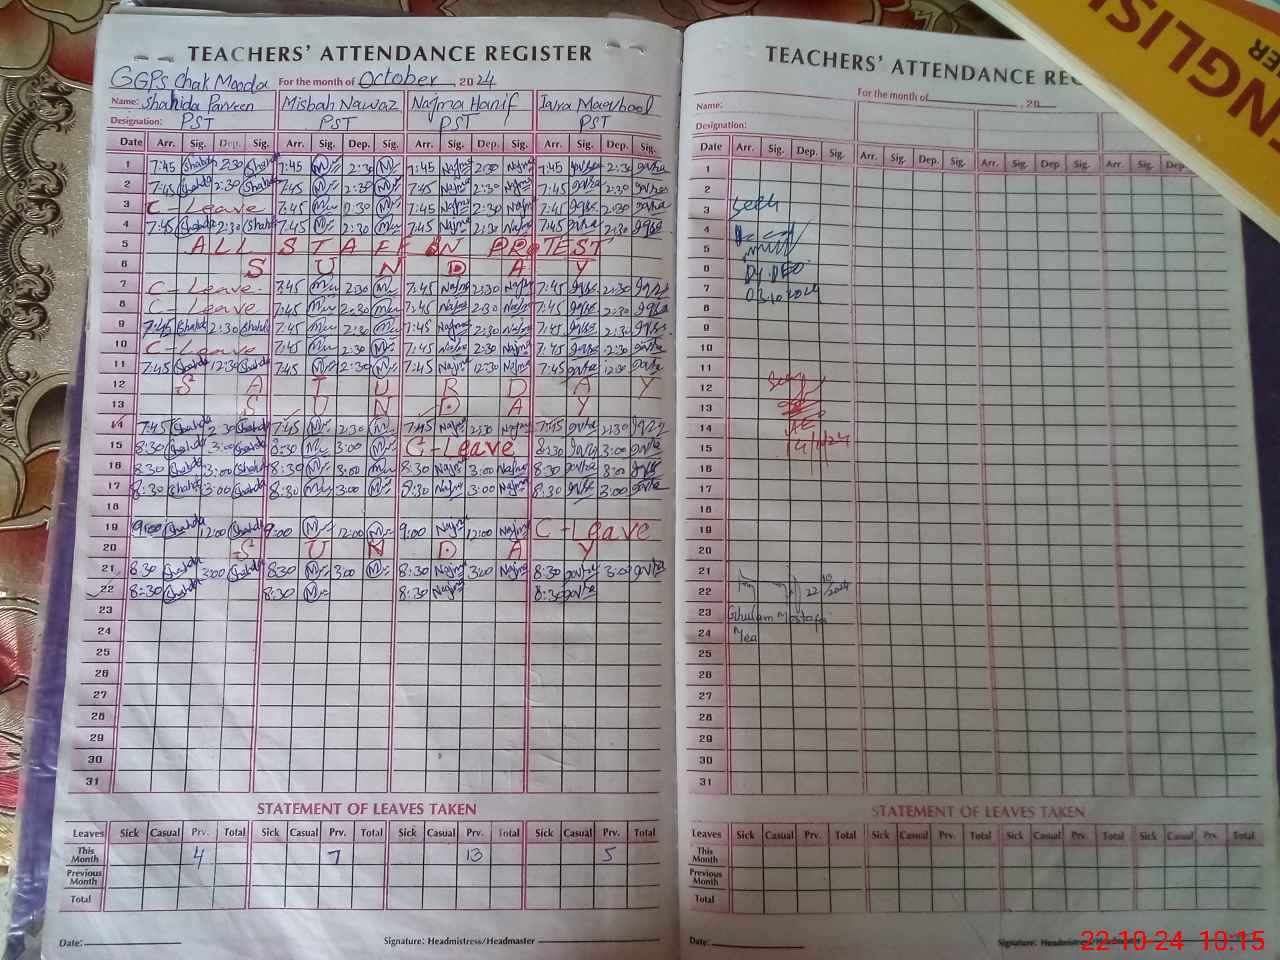 TEACHERS' ATTENDANCE REGISTER
GGPS Chak Mooda For the month of October, 2024
Name: Shahida Parveen Misbah Nawaz Najma Hanif
Designation: PST PST PST PST
Date Arr. Sig. Dep. Sig. Arr. Sig. Dep. Sig. Arr. Sig. Dep. Sig. Arr. Sig. Dep. Sig.
1 7:45 Shahida 2:30 Shahida 7:45 M 2:30 M 7:45 Najma 2:30 Najma 7:45 2:30
2 7:45 Shahida 2:30 Shahida 7:45 M 2:30 M 7:45 Najma 2:30 Najma 7:45 2:30
3 C-Leave 7:45 M 2:30 M 7:45 Najma 2:30 Najma 7:45 2:30
4 7:45 Shahida 2:30 Shahida 7:45 M 2:30 M 7:45 Najma 2:30 Najma 7:45 2:30
5 ALL STAFF ON PROTEST
6 SUNDAY
7 C-Leave 7:45 M 2:30 M 7:45 Najma 2:30 Najma 7:45 2:30
8 C-Leave 7:45 M 2:30 M 7:45 Najma 2:30 Najma 7:45 2:30
9 7:45 Shahida 2:30 Shahida 7:45 M 2:30 M 7:45 Najma 2:30 Najma 7:45 2:30
10 C-Leave 7:45 M 2:30 M 7:45 Najma 2:30 Najma 7:45 2:30
11 7:45 Shahida 12:30 Shahida 7:45 M 2:30 M 7:45 Najma 12:30 Najma 7:45 12:30
12 SATURDAY
13 SUNDAY
14 7:45 Shahida 2:30 Shahida 7:45 M 2:30 M 7:45 Najma 2:30 Najma 7:45 2:30
15 8:30 Shahida 3:00 Shahida 8:30 M 3:00 M C-Leave 8:30 3:00
16 8:30 Shahida 3:00 Shahida 8:30 M 3:00 M 8:30 Najma 3:00 Najma 8:30 3:00
17 8:30 Shahida 3:00 Shahida 8:30 M 3:00 M 8:30 Najma 3:00 Najma 8:30 3:00
18
19 9:00 Shahida 12:00 Shahida 9:00 M 12:00 M 9:00 Najma 12:00 Najma C-Leave
20 SUNDAY
21 8:30 Shahida 3:00 Shahida 8:30 M 3:00 M 8:30 Najma 3:00 Najma 8:30 3:00
22 8:30 Shahida 8:30 M 8:30 Najma 8:30
23
24
25
26
27
28
29
30
31
STATEMENT OF LEAVES TAKEN
Leaves Sick Casual Prv. Total Sick Casual Prv. Total Sick Casual Prv. Total Sick Casual Prv. Total
This Month 4 7 13 5
Previous Month
Total
Date: Signature: Headmistress/Headmaster
TEACHERS' ATTENDANCE REG
For the month of , 20
Name:
Designation:
Date Arr. Sig. Dep. Sig. Arr. Sig. Dep. Sig. Arr. Sig. Dep. Sig. Arr. Sig. Dep. Sig.
1
2
3 Seen
4
5
6 Dy. DEO
7 03.10.2024
8
9
10
11
12
13
14 AE
15 14/10/24
16
17
18
19
20
21
22 22/10/2024
23 Ghulam Mostafa
24 Mea
25
26
27
28
29
30
31
STATEMENT OF LEAVES TAKEN
Leaves Sick Casual Prv. Total Sick Casual Prv. Total Sick Casual Prv. Total Sick Casual Prv. Total
This Month
Previous Month
Total
Date: Signature: Headmistress/Headmaster
ENGLISH
22-10-24 10:15